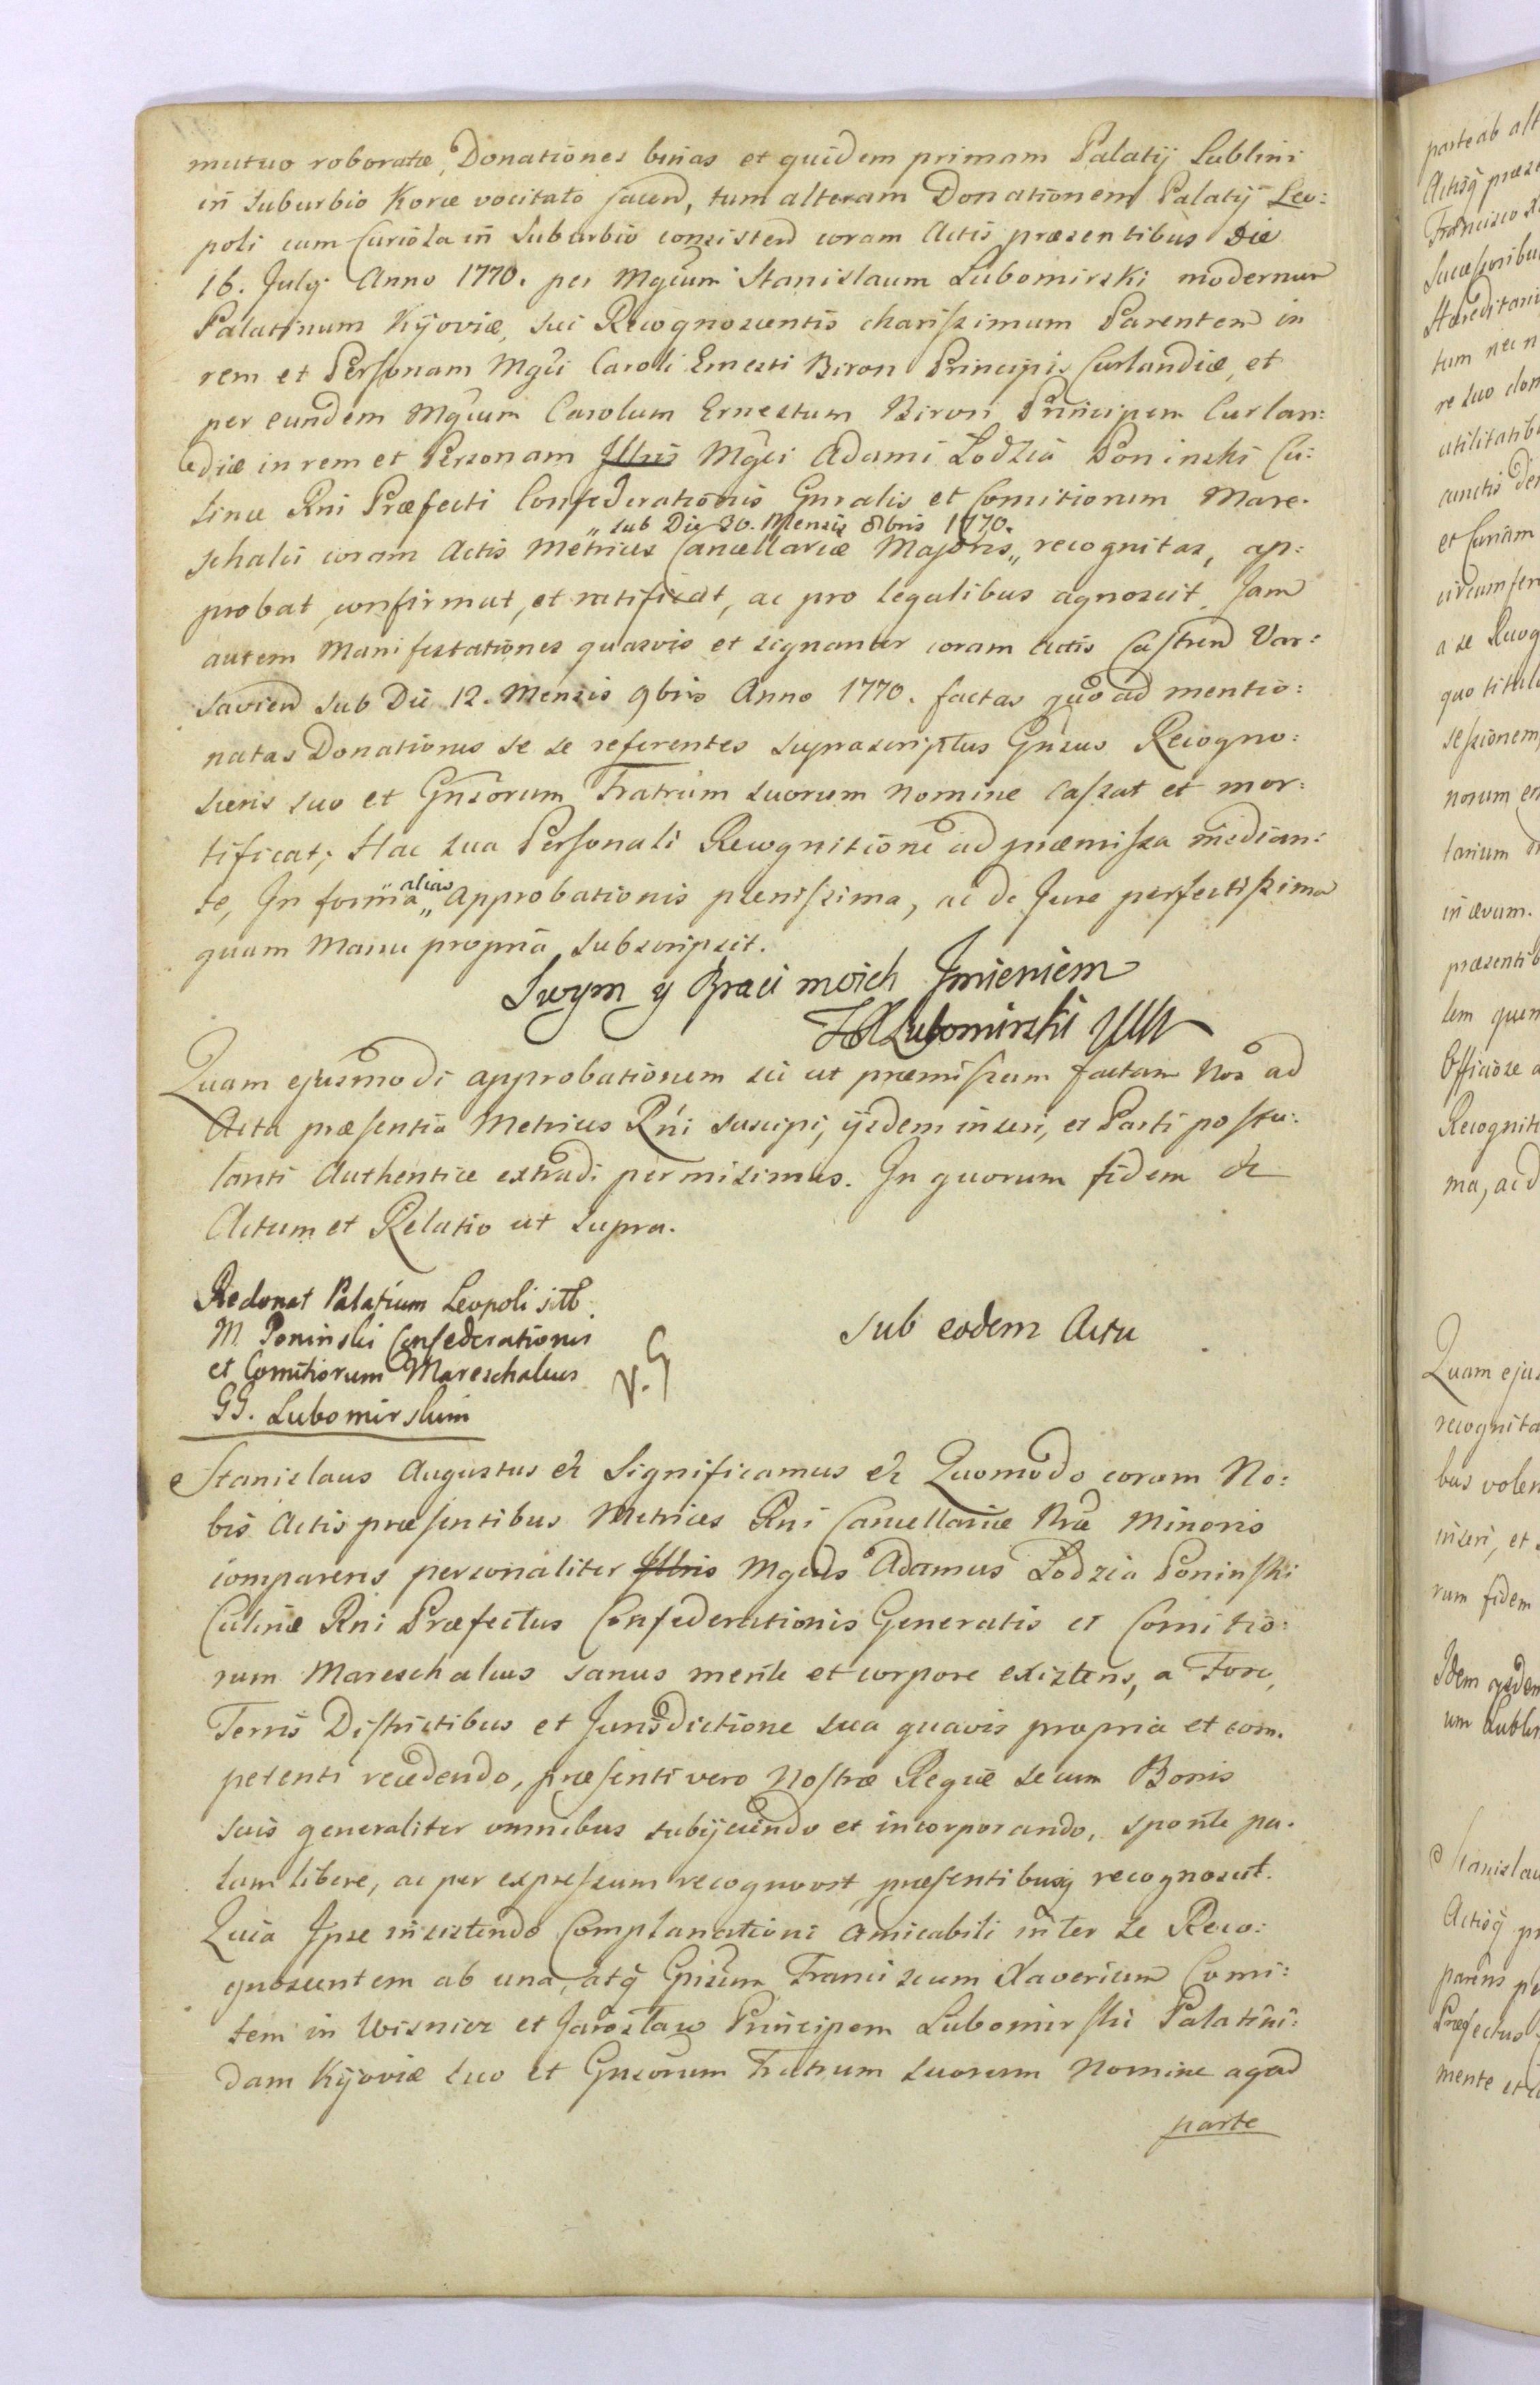 mutuo roboratæ, Donationes binas et quidem primam Palatij Lublini
in Suburbio Korce vocitato jacen, tum alteram Donationem Palatij Leo:
poli cum Curiola in Suburbio consisten coram Actis præsentibus Die
16. July Anno 1770. per Mgcum Stanislaum Lubomirski modernum
Palatinum Kijoviæ, sui Recognoscentis charissimum Parentem in
rem et Personam Mgci Caroli Ernesti Biron Principis Curlandiæ, et
per eundem Mgcum Carolum Ernestum Biron Principem Curlan:
diæ in rem et Personam Illris Mgci Adami Łodzia Poninski Cu:
linæ Rni Præfecti Confederationis Gnralis et Comitiorum Mare.
„sub Die 30. Mensis 8bris 1770.
schalci coram Actis Metrices Cancellariæ Majoris„ recognitas, ap:
probat, confirmat, et ratificat, ac pro legalibus agnoscit. Jam
autem Manifestationes quasvis et signanter coram Actis Castren Var:
savien sub Die 12. Mensis 9bris Anno 1770. factas quo ad mentio:
natas Donationes se se referentes suprascriptus Gnsus Recogno:
scens suo et Gnsorum Fratrum suorum Nomine cassat et mor:
tificat; Hac sua Personali Recognitione ad præmissa median:
te, In forma „alias„ Approbationis plenissima, ac de Jure perfectissima
quam Manu propria subscripsit.
Swym y Braci moich Jmieniem
FX Lubomirski
Quam ejusmodi approbationem sic ut præmissum factam Nos ad
Acta præsentia Metrices Rni suscipi, ijsdem inseri, et Parti postu:
lanti Authentice extradi permisimus. In quorum fidem &
Actum et Relatio ut supra.
Redonat Palatium Leopoli sitt
M. Poninski Confederationis
et Comitiorum Mareschalcus
GG. Lubomirskim
V. G
Sub eodem Actu
Stanislaus Augustus & Significamus & Quomodo coram No:
bis Actis præsentibus Metrices Rni Cancellariæ Nræ Minoris
comparens personaliter Illris Mgcus Adamus Łodzia Poninski
Culinæ Rni Præfectus Confederationis Generalis et Comitio:
rum Mareschalcus sanus mente et corpore existens, a Foro,
Terris Districtibus et Jurisdictione sua quavis propria et com.
petenti recedendo, præsenti vero Nostræ Regiæ se cum Bonis
suis generaliter omnibus subijciendo et incorporando, sponte pa.
lam libere, ac per expressum recognovit præsentibusq recognoscit.
Quia Ipse insistendo Complanationi amicabili inter se Reco:
gnoscentem ab una, atq Gnsum Franciscum Xaverium Comi:
tem in Wisnicz et Jarosław Principem Lubomirski Palatini:
dam Kijoviæ suo et Gnsorum Fratrum suorum Nomine agen
parte
parte ab alt
Actisq præse
Francisco X
Successoribu
Hæreditari
tum nec n
re suo don
utilitatib
cunctis de
et Curiam
circumferen
a se Recog
quo titulo
sessionem,
norum en
tarium
in ævum.
præsentib
lem quem
Officiose a
Recogniti
ma, ac d
Quam ejus
recognita
bus volen
inseri, et
rum fidem
Idem ejsdem
um Lublin
Stanislau
Actisq pr
parens pe
Præfectus
mente et c